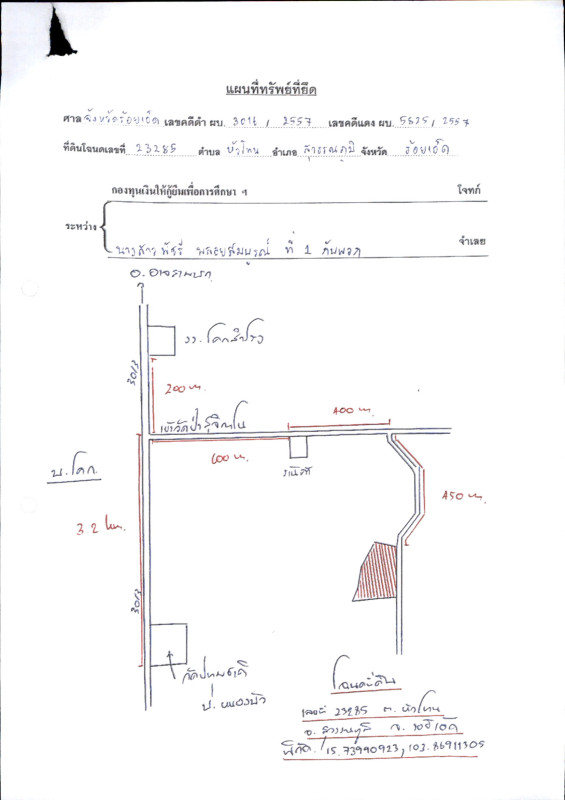 แผนที่ทรัพย์ที่ยึด
ศาล จังหวัดร้อยเอ็ด เลขคดีดำ ผบ. 3016 / 2557 เลขคดีแดง ผบ. 5825 / 2557
ที่ดินโฉนดเลขที่ 23285 ตำบล หัวโทน อำเภอ สุวรรณภูมิ จังหวัด ร้อยเอ็ด
กองทุนเงินให้กู้ยืมเพื่อการศึกษา ฯ โจทก์
ระหว่าง
นางสาว พัชรี พลอยสมบูรณ์ ที่ 1 กับพวก จำเลย
อ. อาจสามารถ
รร. โคกสำโรง
200 ม.
400 ม.
600 ม.
บ. โคก
450 ม.
3.2 กม.
บ. หนองบัว
โฉนดที่ดิน
เลขที่ 23285 ต. หัวโทน
อ. สุวรรณภูมิ จ. ร้อยเอ็ด
พิกัด. 15.73990923, 103.86911305